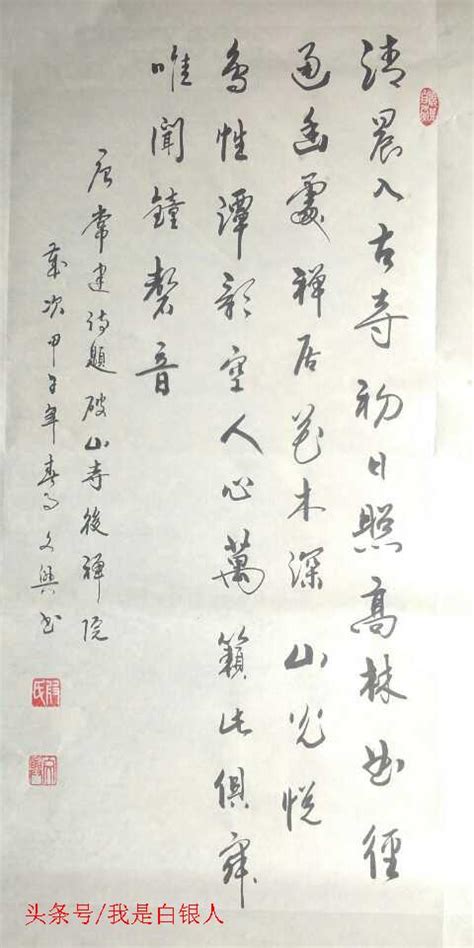 清晨入古寺初日照高林曲徑
通幽處禅居花木深山光悦
鸟性潭影空人心萬籟此俱寂
唯聞鐘磬音
唐常建诗題破山寺後禅院
歲次甲子年春月文興书
头条号/我是白银人